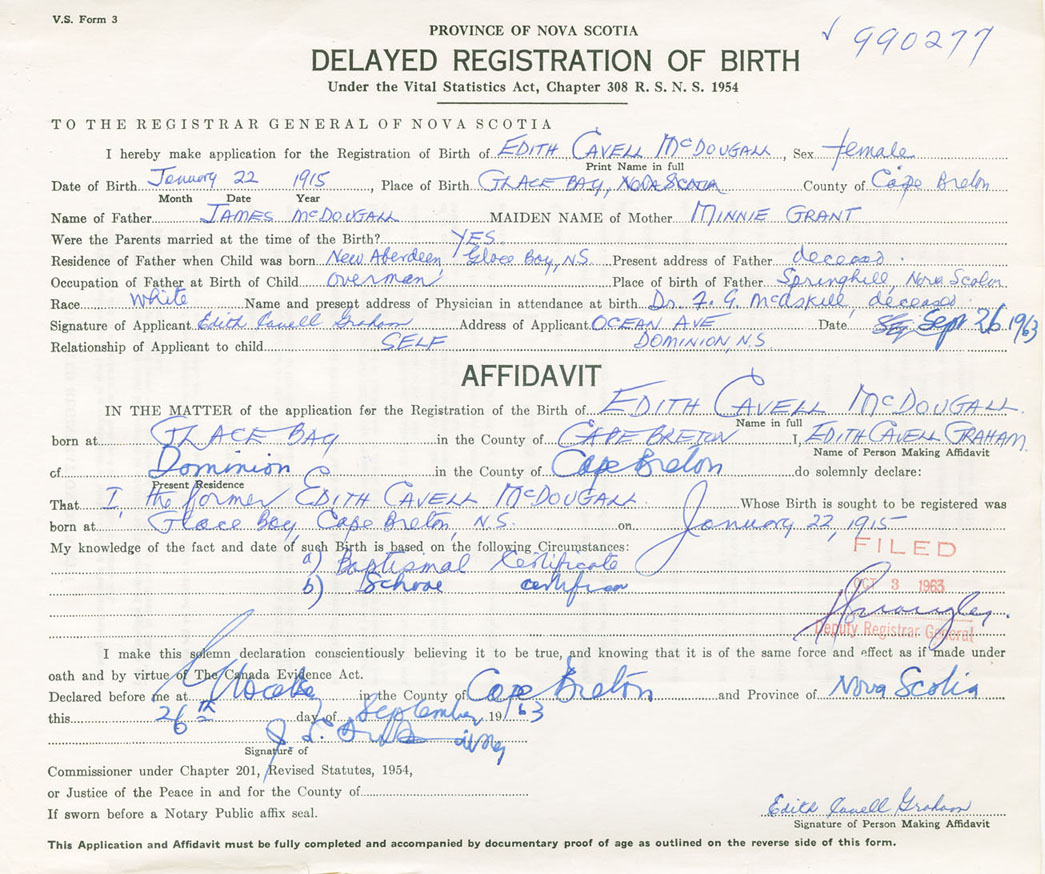 V.S. Form 3
PROVINCE OF NOVA SCOTIA
✓ 990277
DELAYED REGISTRATION OF BIRTH
Under the Vital Statistics Act, Chapter 308 R. S. N. S. 1954
TO THE REGISTRAR GENERAL OF NOVA SCOTIA
I hereby make application for the Registration of Birth of EDITH CAVELL McDOUGALL, Sex female
Print Name in full
Date of Birth January 22 1915, Place of Birth GLACE BAY, NOVA SCOTIA County of Cape Breton
Month Date Year
Name of Father JAMES McDOUGALL MAIDEN NAME of Mother MINNIE GRANT
Were the Parents married at the time of the Birth? YES
Residence of Father when Child was born New Aberdeen Glace Bay, N.S. Present address of Father deceased
Occupation of Father at Birth of Child overman Place of birth of Father Springhill, Nova Scotia
Race White Name and present address of Physician in attendance at birth Dr. F. G. McAskill, deceased
Signature of Applicant Edith Cavell Graham Address of Applicant OCEAN AVE Date Sept 26, 1963
Relationship of Applicant to child SELF DOMINION, N.S.
AFFIDAVIT
IN THE MATTER of the application for the Registration of the Birth of EDITH CAVELL McDOUGALL
Name in full
born at GLACE BAY in the County of CAPE BRETON I, EDITH CAVELL GRAHAM
Name of Person Making Affidavit
of Dominion in the County of Cape Breton do solemnly declare:
Present Residence
That I, the former EDITH CAVELL McDOUGALL Whose Birth is sought to be registered was
born at Glace Bay, Cape Breton, N.S. on January 22, 1915
My knowledge of the fact and date of such Birth is based on the following Circumstances:
a) Baptismal Certificate
b) School
FILED
OCT 3 1963
Deputy Registrar General
I make this solemn declaration conscientiously believing it to be true, and knowing that it is of the same force and effect as if made under
oath and by virtue of The Canada Evidence Act.
Declared before me at in the County of Cape Breton and Province of Nova Scotia
this 26th day of September 1963
Signature of
Commissioner under Chapter 201, Revised Statutes, 1954,
or Justice of the Peace in and for the County of
If sworn before a Notary Public affix seal.
Edith Cavell Graham
Signature of Person Making Affidavit
This Application and Affidavit must be fully completed and accompanied by documentary proof of age as outlined on the reverse side of this form.